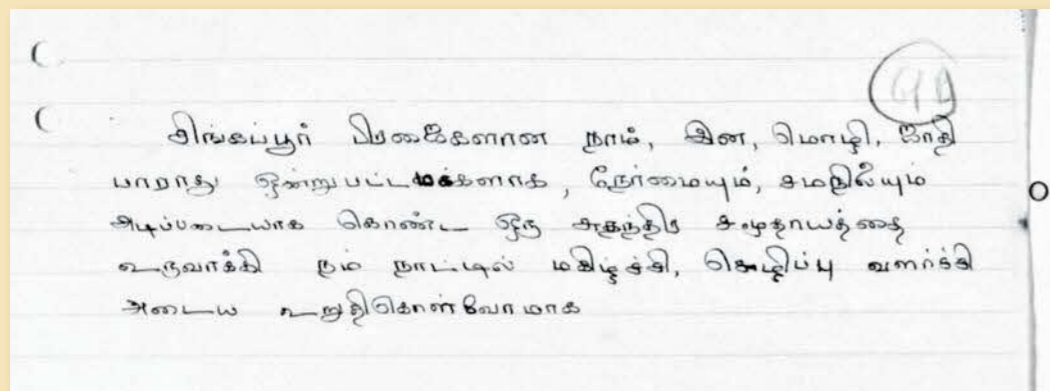 சிங்கப்பூர் பிரஜைகளான நாம், இன, மொழி, ஜாதி
பாராது ஒன்றுபட்டமக்களாக, நேர்மையும், சமநிலையும்
அடிப்படையாக கொண்ட ஒரு சுதந்திர சமுதாயத்தை
உருவாக்கி நம் நாட்டில் மகிழ்ச்சி, செழிப்பு வளர்ச்சி
அடைய உறுதிகொள்வோமாக